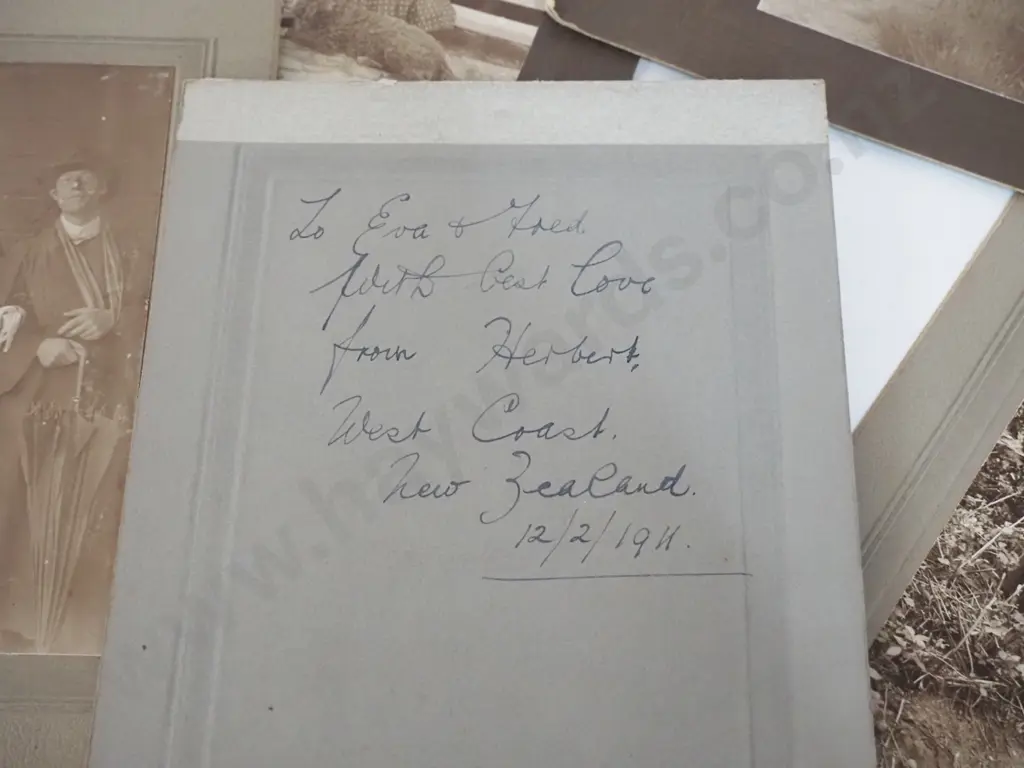 To Eva & Fred
With best love
from Herbert,
West Coast.
New Zealand.
12/2/1911.
www.haywords.co.nz